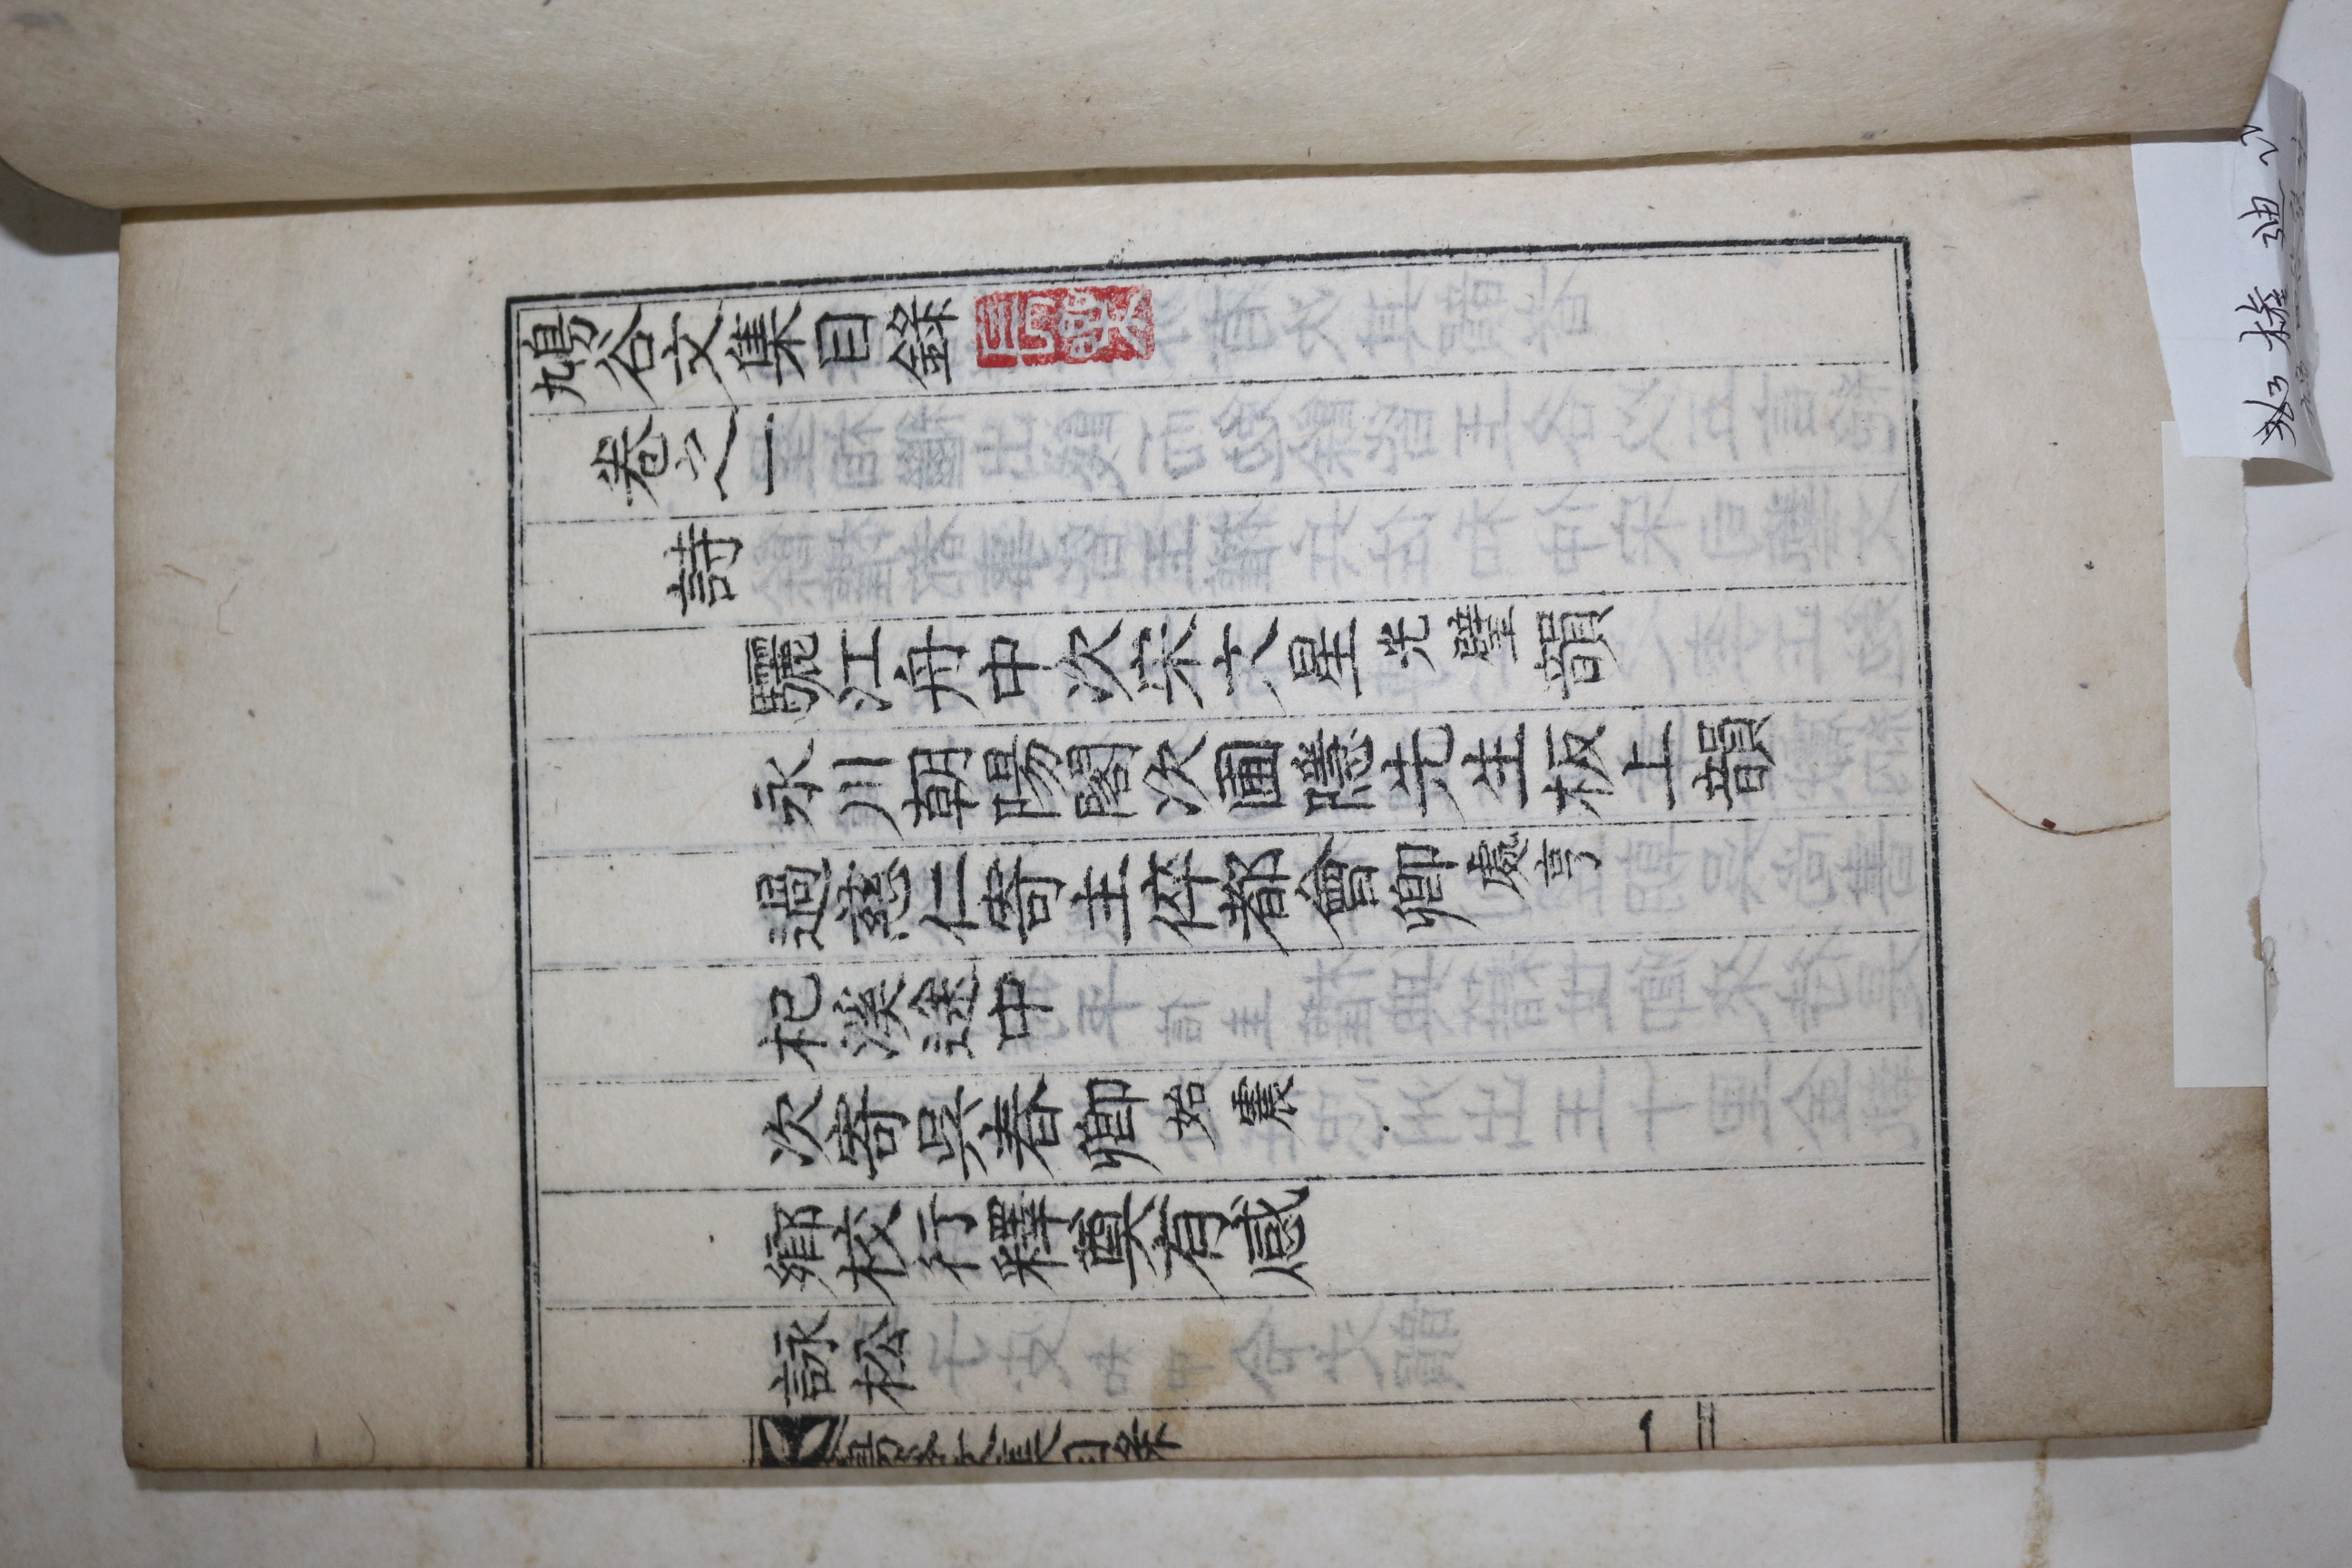 鳩谷文集目錄
卷之一
詩
驪江舟中次宋文星光璧韻
永川朝陽閣次圃隱先生板上韻
過慈仁寄主倅都會卿處亨
杞溪途中
次寄吳春卿始震
鄉校行釋奠有感
詠松